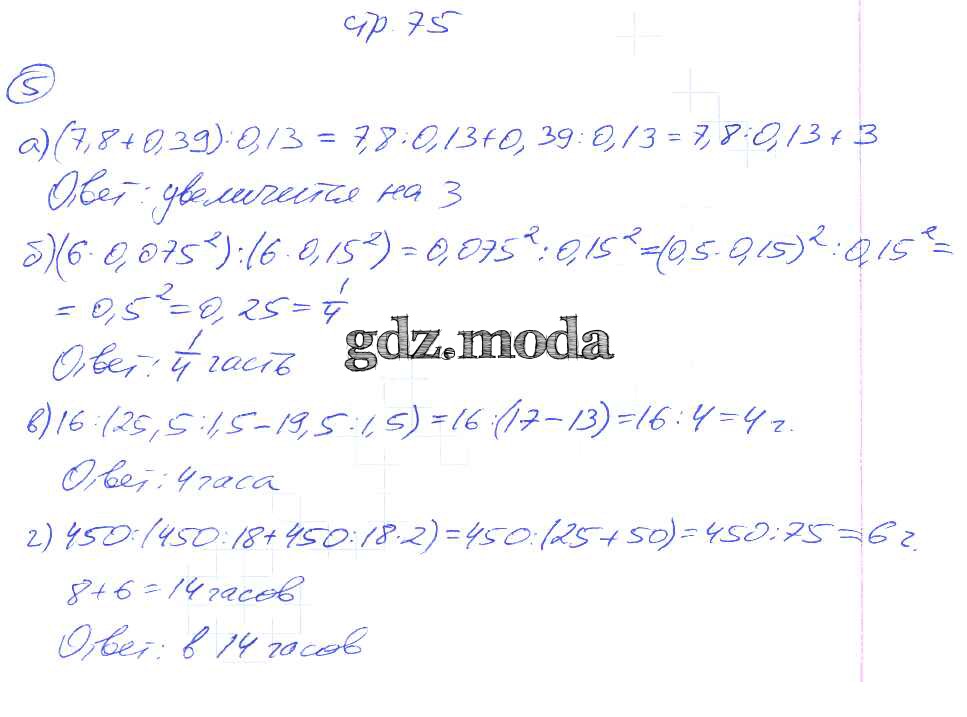 стр. 75
5
а) (7,8+0,39):0,13 = 7,8:0,13+0,39:0,13 = 7,8:0,13+3
Ответ: увеличится на 3
б) (6·0,075²):(6·0,15²) = 0,075²:0,15² = (0,5·0,15)²:0,15² =
= 0,5² = 0,25 = 1/4
gdz.moda
Ответ: 1/4 часть
в) 16:(25,5:1,5-19,5:1,5) = 16:(17-13) = 16:4 = 4 ч.
Ответ: 4 часа
г) 450:(450:18+450:18·2) = 450:(25+50) = 450:75 = 6 ч.
8+6 = 14 часов
Ответ: в 14 часов